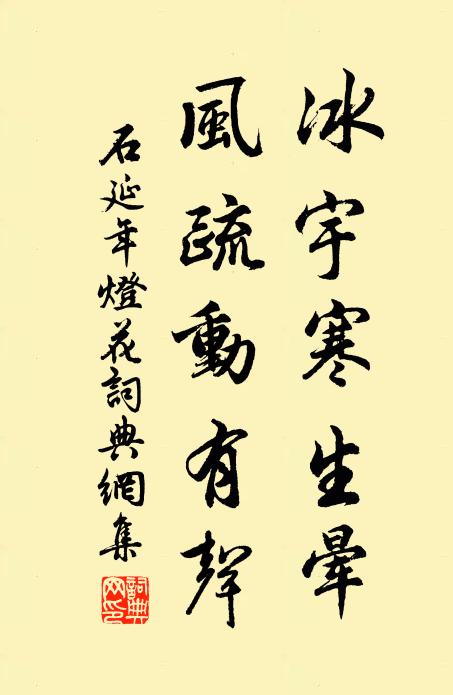 冰宇寒生暈
風疏動有聲
石延年燈花詞典網集
詞典网印